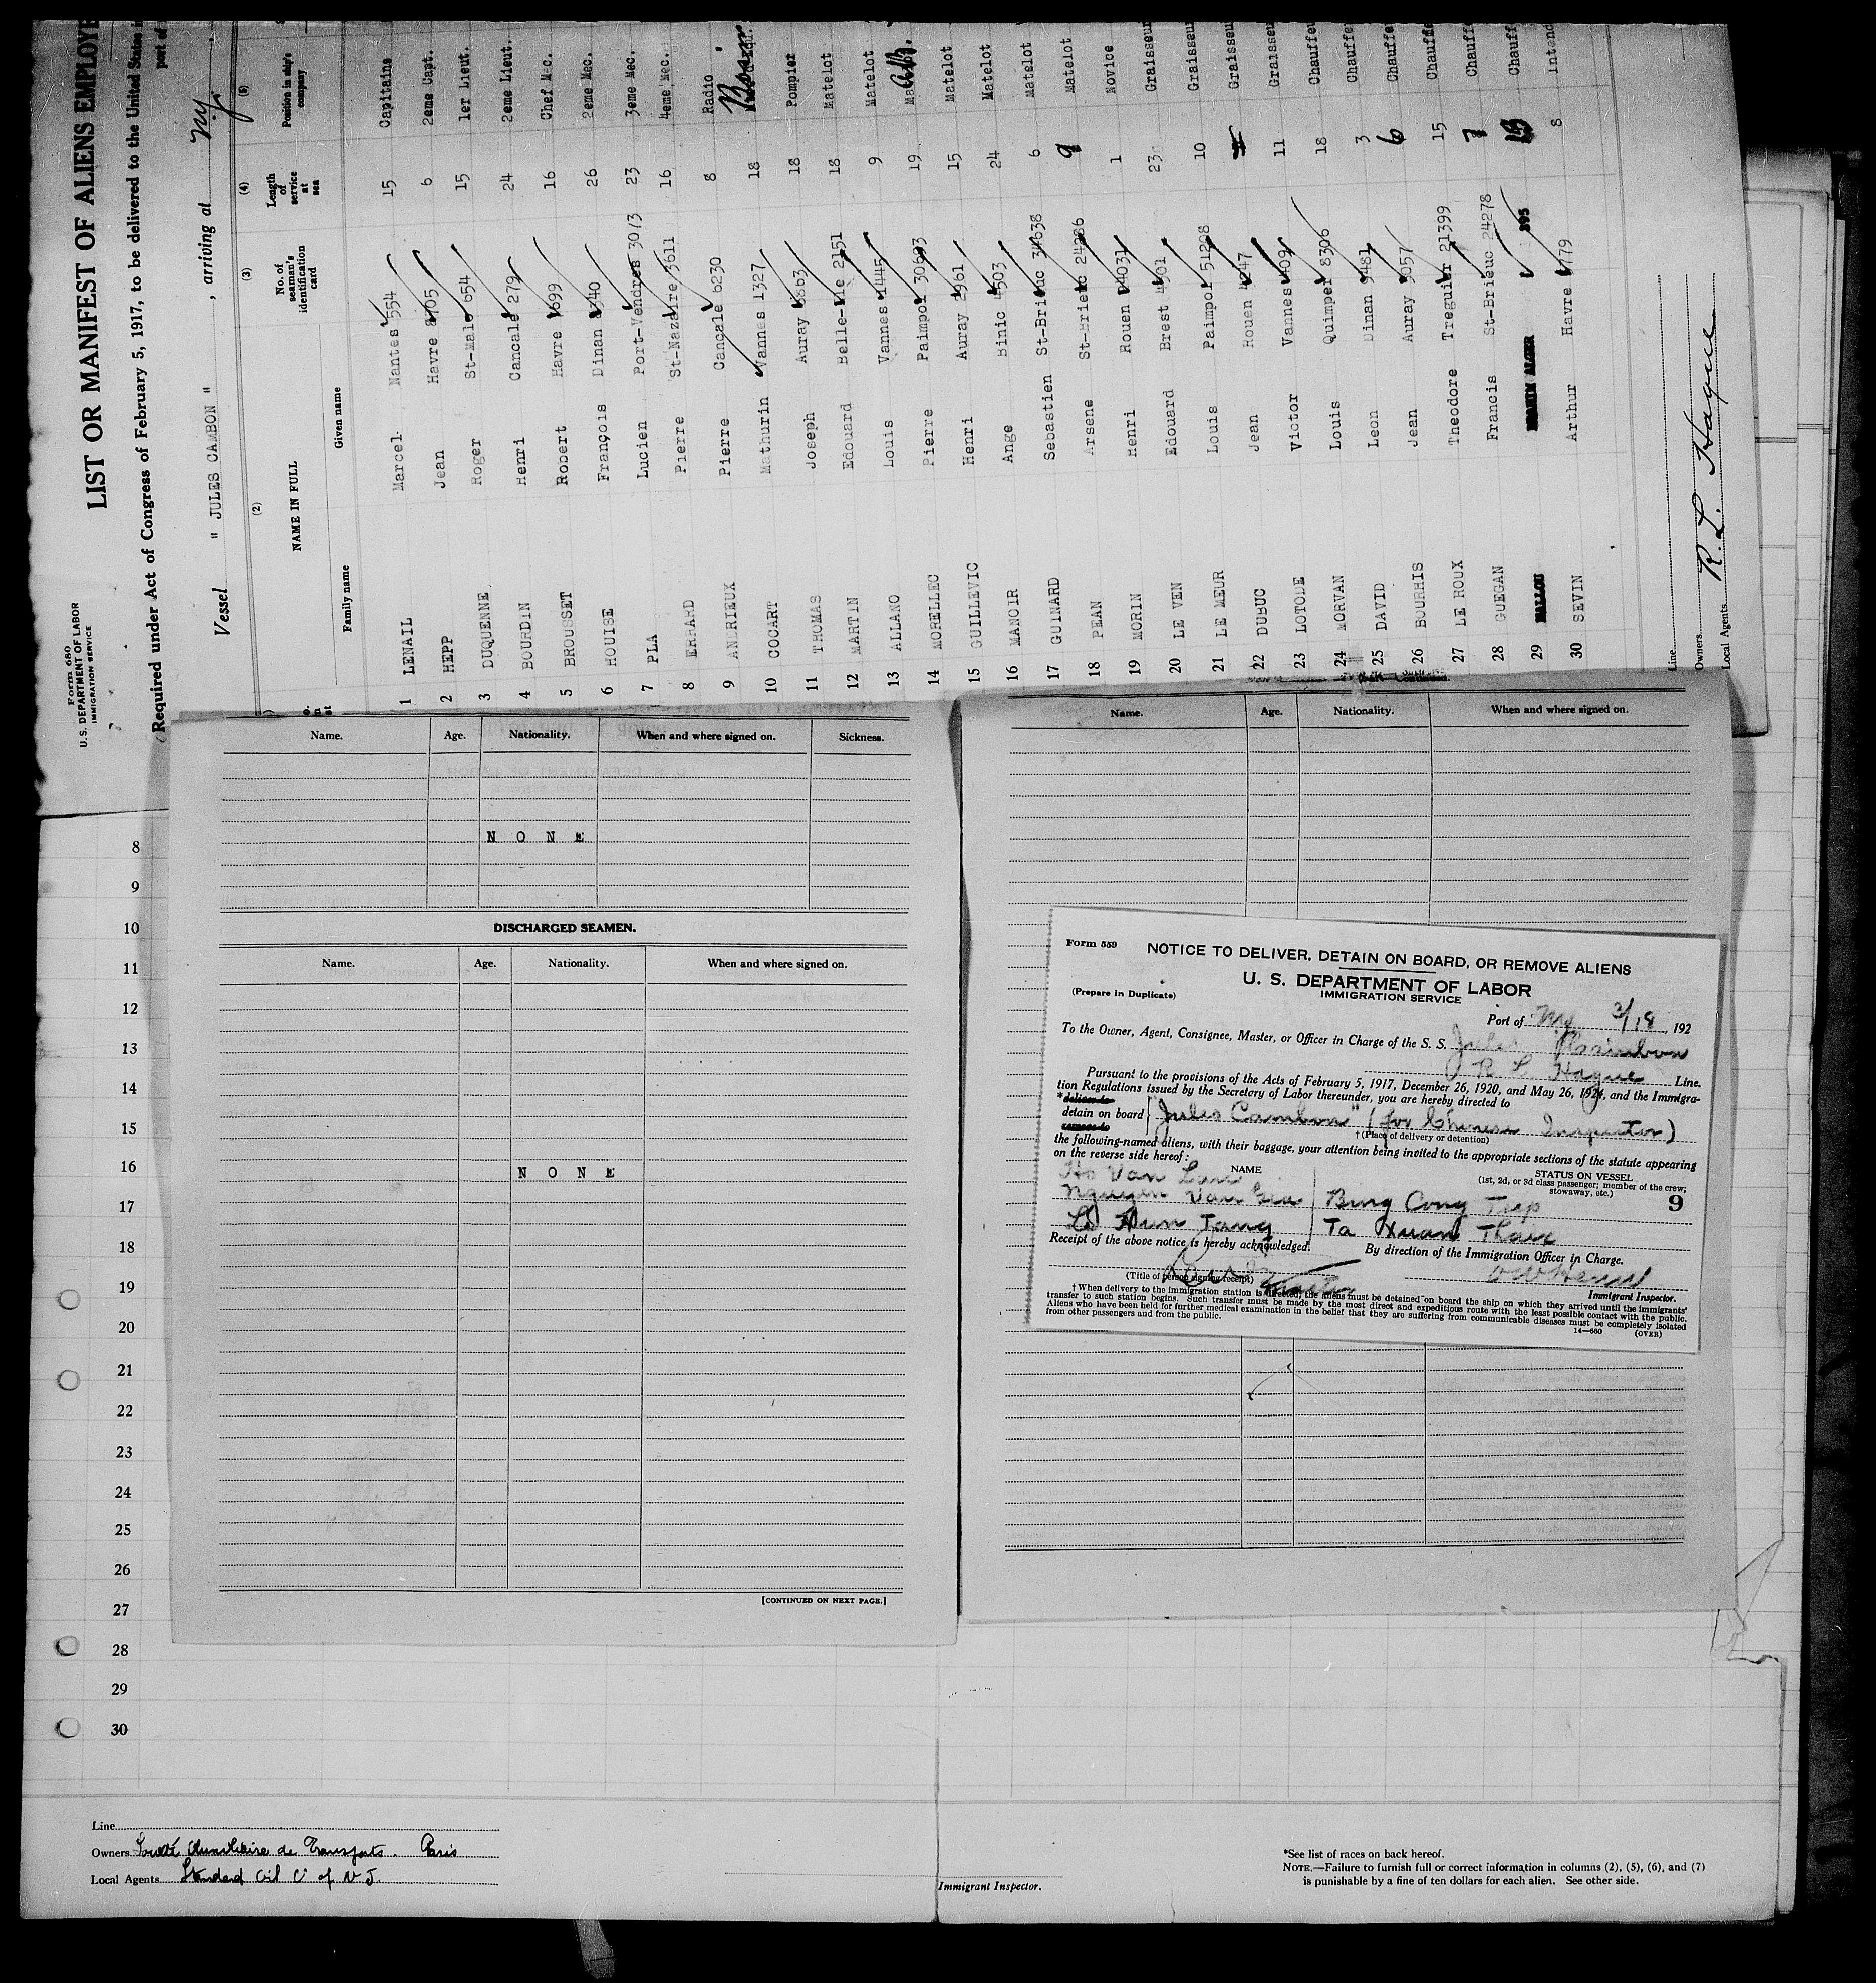 Form 680
U. S. DEPARTMENT OF LABOR
IMMIGRATION SERVICE
LIST OR MANIFEST OF ALIENS EMPLOY
Required under Act of Congress of February 5, 1917, to be delivered to the United States
part of
Vessel " JULES CAMBON " , arriving at NY
(2) (3) (4) (5)
NAME IN FULL No. of seaman's identification card Length of service at sea Position in ship's company
Family name Given name
1 LENAIL Marcel Nantes 554 15 Capitaine
2 HEPP Jean Havre 6 2eme Capt.
3 DUQUENNE Roger St-Malo 654 15 1er Lieut.
4 BOURDIN Henri Cancale 279 24 2eme Lieut.
5 BROUSSET Robert Havre 16 Chef Mec.
6 HOUISE François Dinan 26 2eme Mec.
7 PLA Lucien Port-Vendres 3073 23 3eme Mec.
8 ERHARD Pierre St-Nazaire 3611 16 4eme Mec.
9 ANDRIEUX Pierre Cancale 6230 8 Radio
10 COCART Mathurin Vannes 1327 18 Bosin
11 THOMAS Joseph Auray 18 Pompier
12 MARTIN Edouard Belle-Ile 2151 18 Matelot
13 ALLANO Louis Vannes 1445 9 Matelot
14 MORELLEC Pierre Paimpol 30693 19
15 GUILLEVIC Henri Auray 15 Matelot
16 MANOIR Ange Binic 24 Matelot
17 GUINARD Sebastien St-Brieuc 34638 6 Matelot
18 PEAN Arsene St-Brieuc 9 Matelot
19 MORIN Henri Rouen 1 Novice
20 LE VEN Edouard Brest 23 Graisseur
21 LE MEUR Louis Paimpol 51208 10 Graisseur
22 DUBUC Jean Rouen Graisseu
23 LOTODE Victor Vannes 11 Graisseu
24 MORVAN Louis Quimper 8306 18 Chauffeu
25 DAVID Leon Dinan 3 Chauffe
26 BOURHIS Jean Auray 6 Chauffe
27 LE ROUX Theodore Treguier 21399 15 Chauffe
28 GUEGAN Francis St-Brieuc 24278 7 Chauff
29 Chauff
30 SEVIN Arthur Havre 8 Intend
Line
Owners
Local Agents R. L. Hague
Name. Age. Nationality. When and where signed on. Sickness.
NONE
DISCHARGED SEAMEN.
Name. Age. Nationality. When and where signed on.
NONE
[CONTINUED ON NEXT PAGE.]
Name. Age. Nationality. When and where signed on.
Form 559
NOTICE TO DELIVER, DETAIN ON BOARD, OR REMOVE ALIENS
U. S. DEPARTMENT OF LABOR
IMMIGRATION SERVICE
(Prepare in Duplicate)
Port of NY 3/18, 192
To the Owner, Agent, Consignee, Master, or Officer in Charge of the S. S. Jules Cambon
R L Hague Line.
Pursuant to the provisions of the Acts of February 5, 1917, December 26, 1920, and May 26, 1924, and the Immigra-
tion Regulations issued by the Secretary of Labor thereunder, you are hereby directed to
*deliver to
detain on board "Jules Cambon" (for Chinese Inspector)
remove to
†(Place of delivery or detention)
the following-named aliens, with their baggage, your attention being invited to the appropriate sections of the statute appearing
on the reverse side hereof:
NAME STATUS ON VESSEL
(1st, 2d, or 3d class passenger; member of the crew;
stowaway, etc.)
Ho Van
Nguyen Van Bing Cong 9
Tang Ta Xuan
Receipt of the above notice is hereby acknowledged.
By direction of the Immigration Officer in Charge.
(Title of person signing receipt)
Immigrant Inspector.
†When delivery to the immigration station is directed, the aliens must be detained on board the ship on which they arrived until the immigrants'
transfer to such station begins. Such transfer must be made by the most direct and expeditious route with the least possible contact with the public.
Aliens who have been held for further medical examination in the belief that they are suffering from communicable diseases must be completely isolated
from other passengers and from the public.
14—660 (OVER)
8
9
10
11
12
13
14
15
16
17
18
19
20
21
22
23
24
25
26
27
28
29
30
Line
Owners Société Auxiliaire de Transports. Paris
Local Agents Standard Oil C° of N J.
Immigrant Inspector.
*See list of races on back hereof.
NOTE.—Failure to furnish full or correct information in columns (2), (5), (6), and (7)
is punishable by a fine of ten dollars for each alien. See other side.